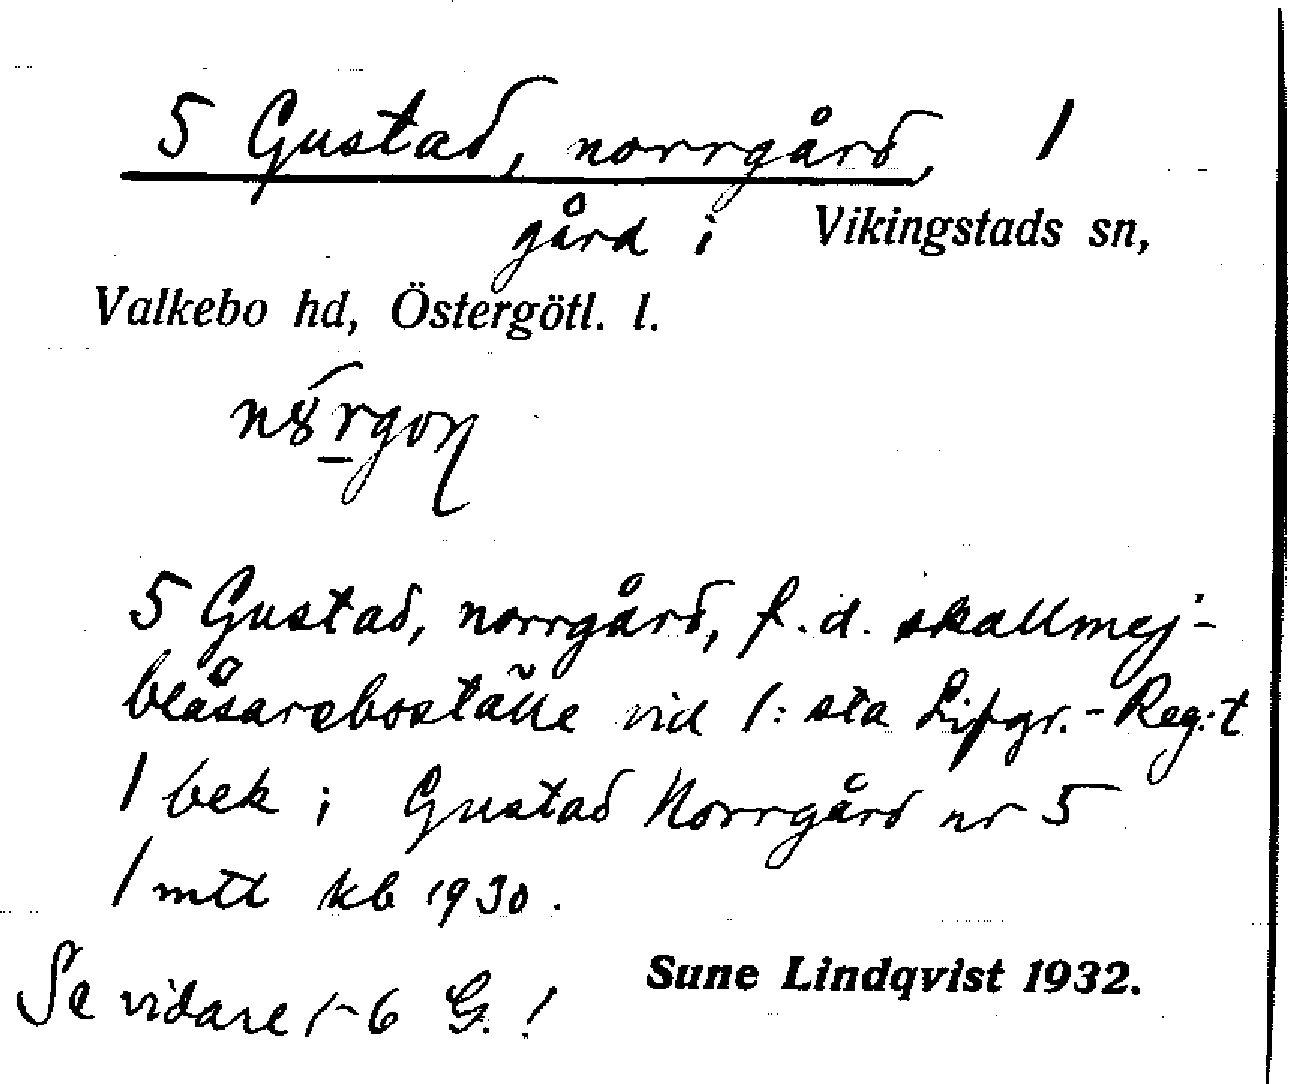 5 Gustad, norrgård, 1
gård i Vikingstads sn,
Valkebo hd, Östergötl. l.
5 Gustad, norrgård, f.d. skallmej-
blåsareboställe vid 1:sta Lifgr.-Reg:t
1 bek i Gustad Norrgård nr 5
1 mtl kb 1930.
Se vidare 1-6 G.!
Sune Lindqvist 1932.